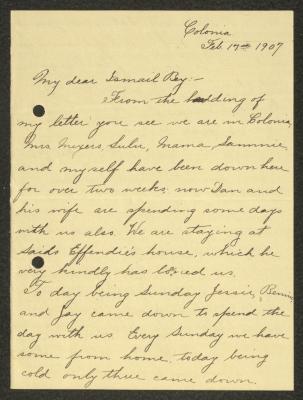 Colonia
Feb 17th 1907
My dear Ismail Bey:-
From the heading of
my letter you see we are in Colonia,
Mrs Meyers Lulu, Mama Sammie,
and myself have been down here
for over two weeks now Dan and
his wife are spending some days
with us also. We are staying at
Saids Effendie's house, which he
very kindly has loaned us.
To day being Sunday Jessie,
and Jay came down to spend the
day with us. Every Sunday we have
some from home. today being
cold only three came down.